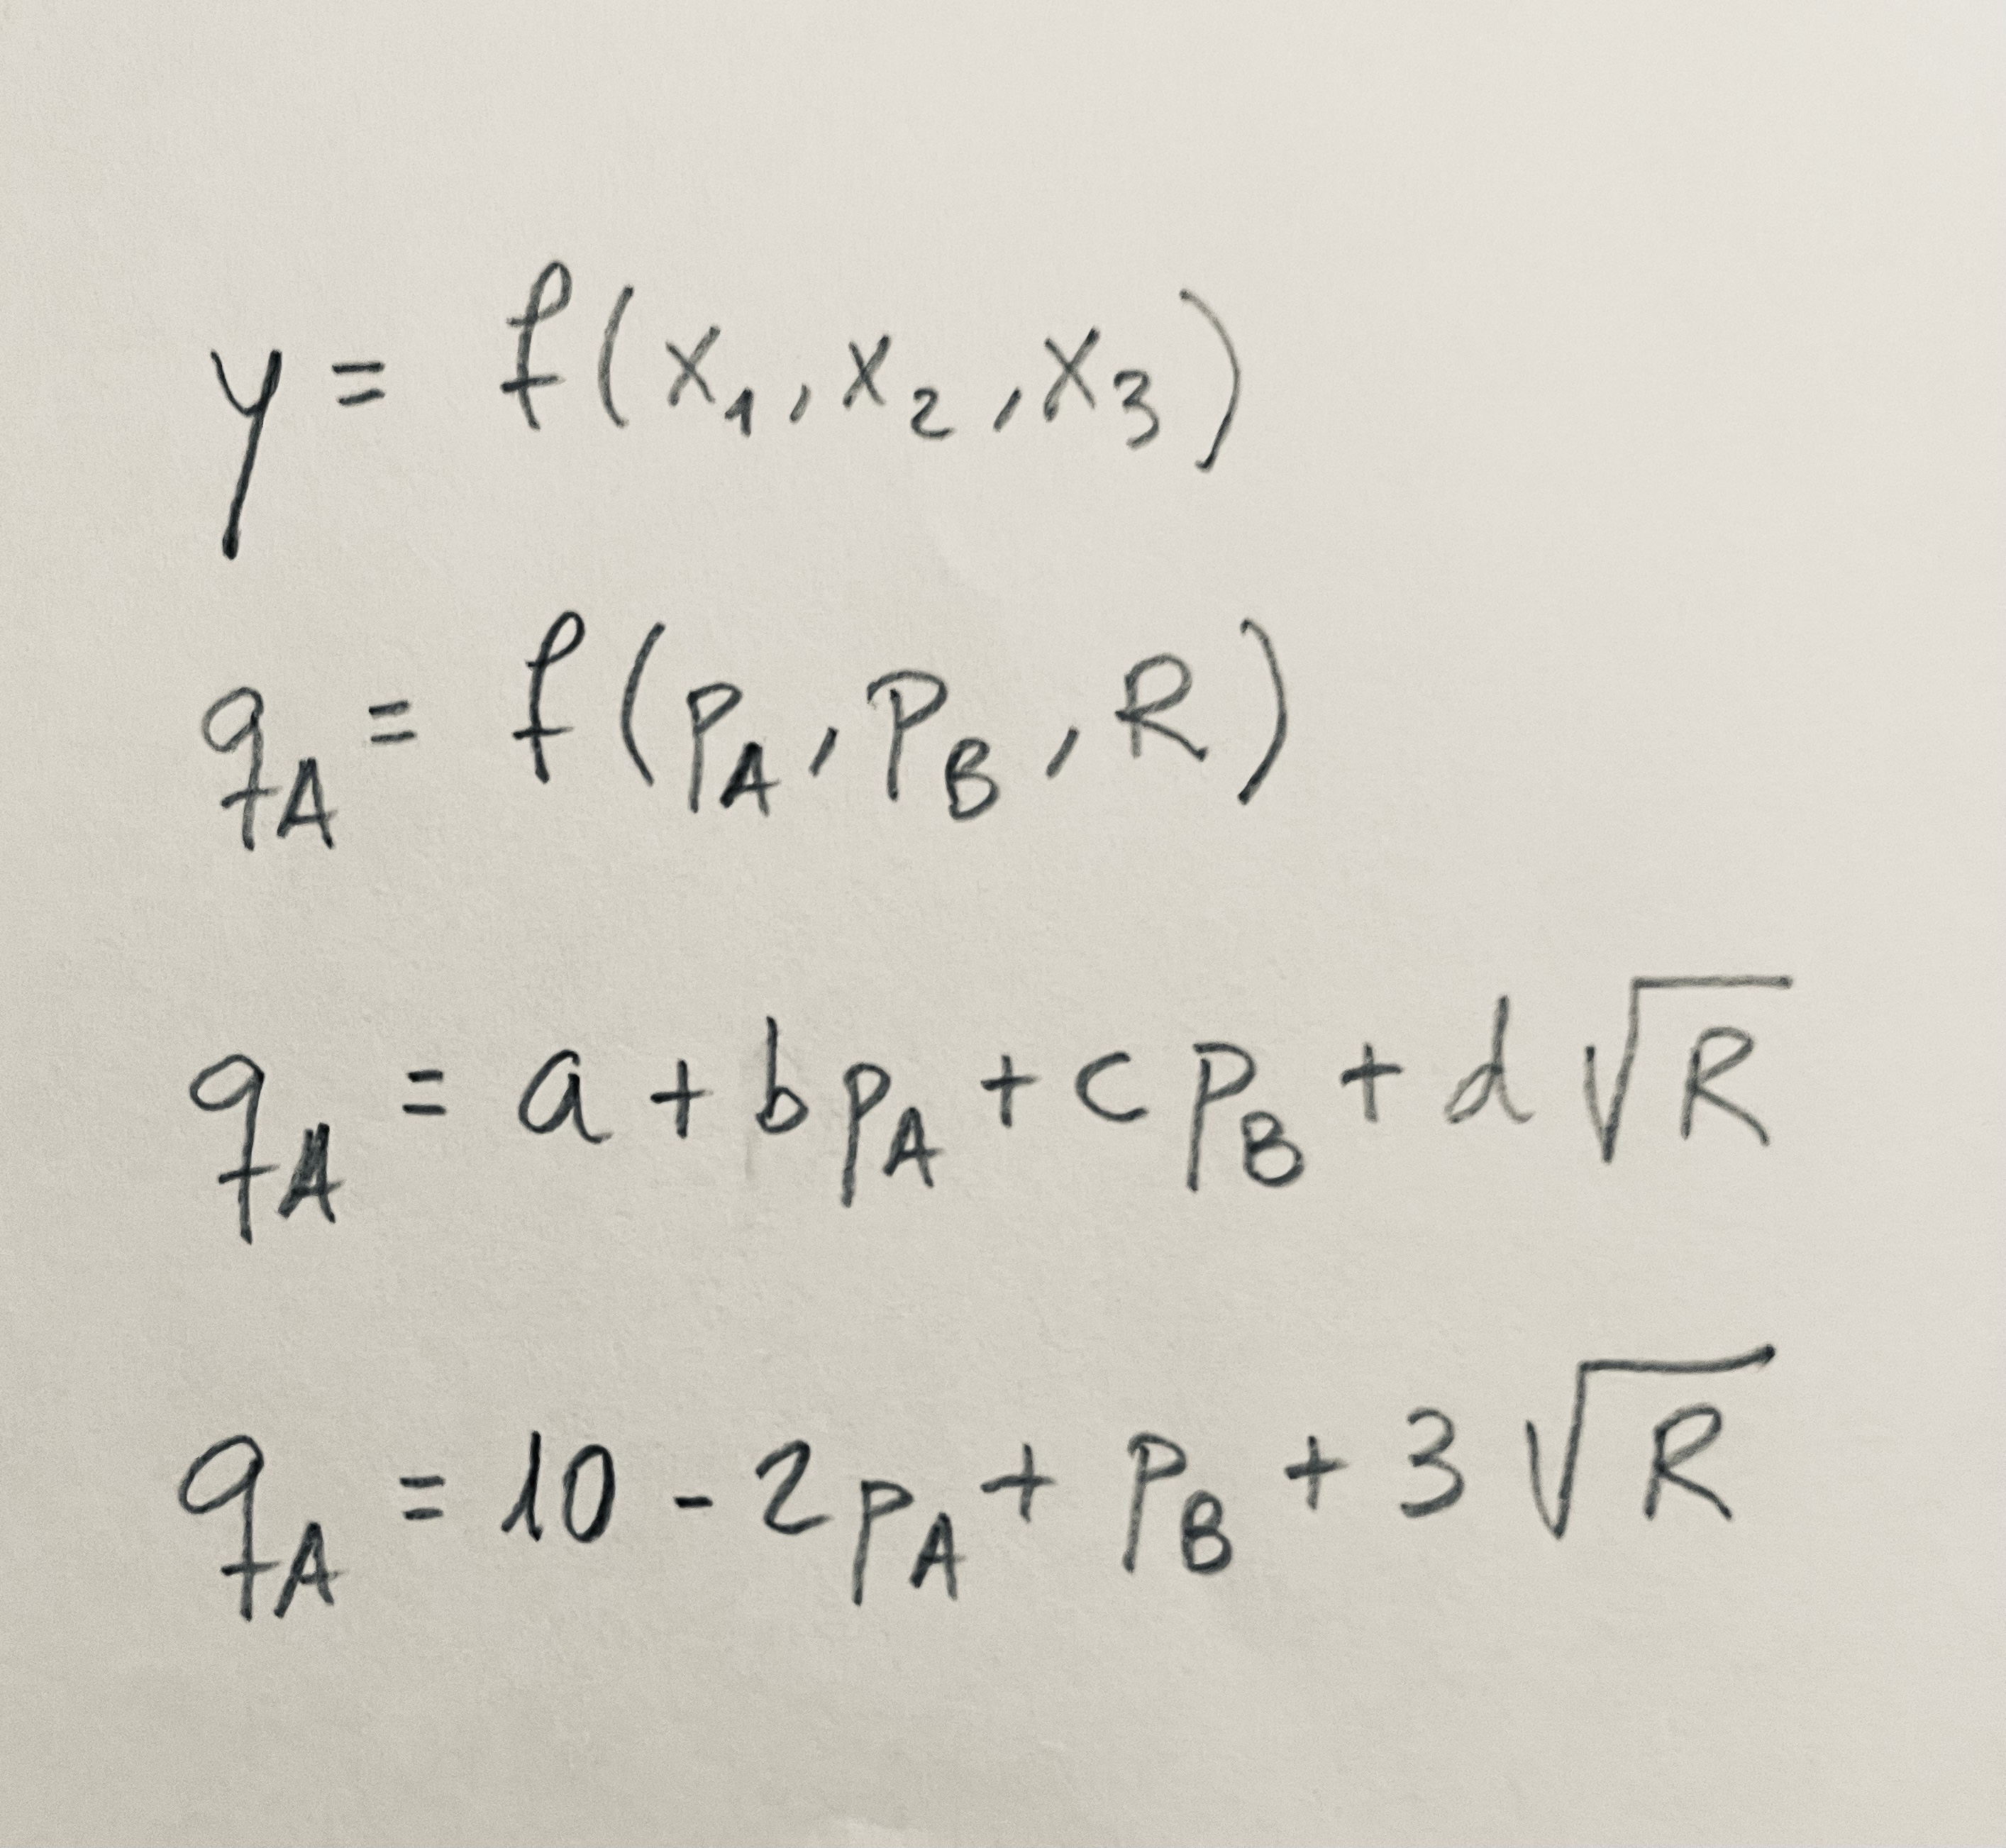 y = f(x₁, x₂, x₃)
q_A = f(p_A, p_B, R)
q_A = a + b p_A + c p_B + d √R
q_A = 10 - 2 p_A + p_B + 3 √R